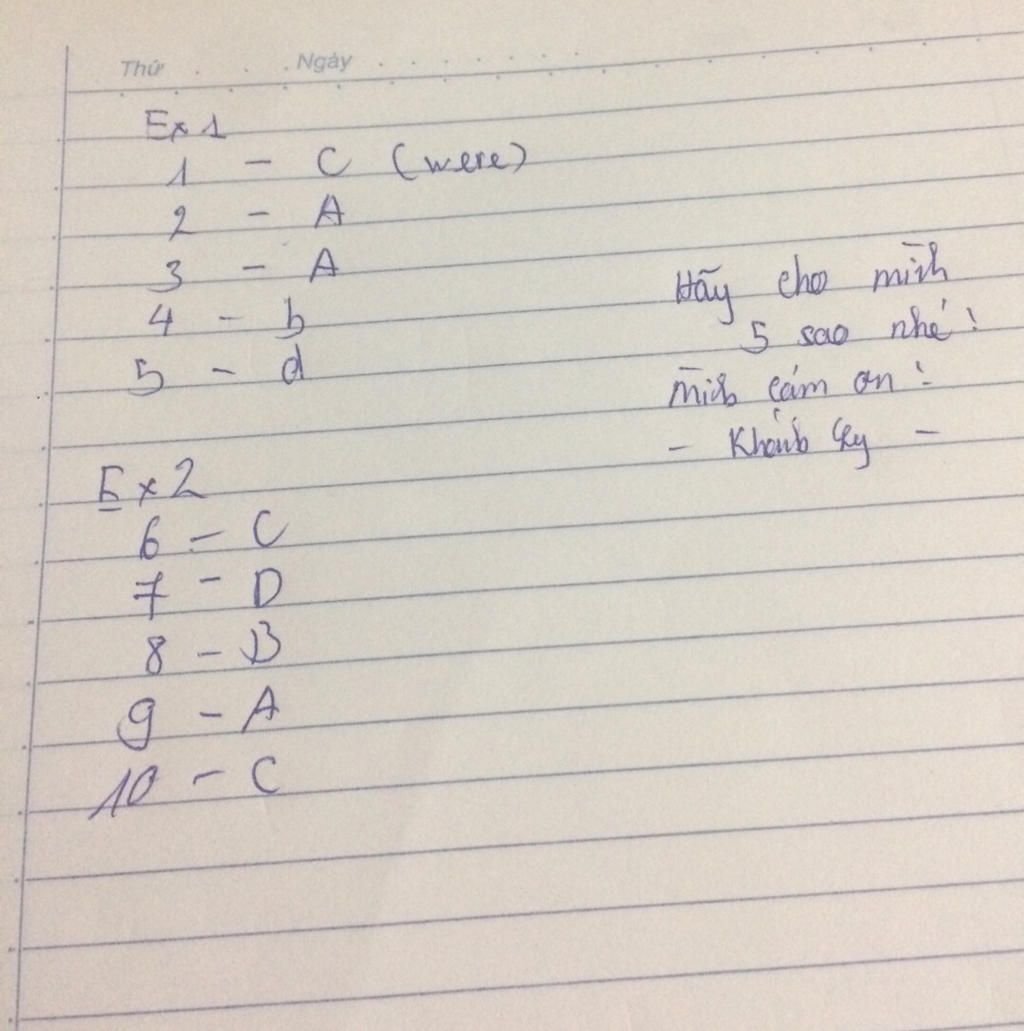 Thứ Ngày
Ex 1
1 - C (were)
2 - A
3 - A
4 - b
5 - d
Hãy cho mình
5 sao nhé!
mình cám ơn!
- Khánh
Ex 2
6 - C
7 - D
8 - B
9 - A
10 - C